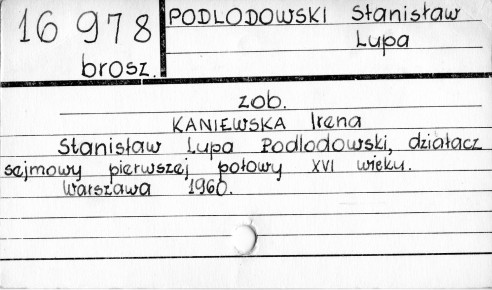 16 978
brosz.
PODLODOWSKI Stanisław
Lupa
zob.
KANIEWSKA Irena
Stanisław Lupa Podlodowski, działacz
sejmowy pierwszej połowy XVI wieku.
Warszawa 1960.